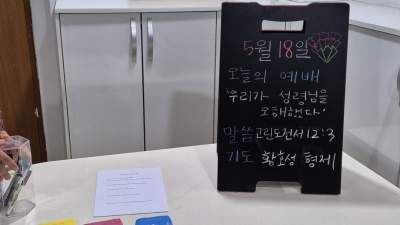 5월 18일
오늘의 예배
'우리가 성령님을
오해했다'
말씀 고린도전서 12:3
기도 황효성 형제